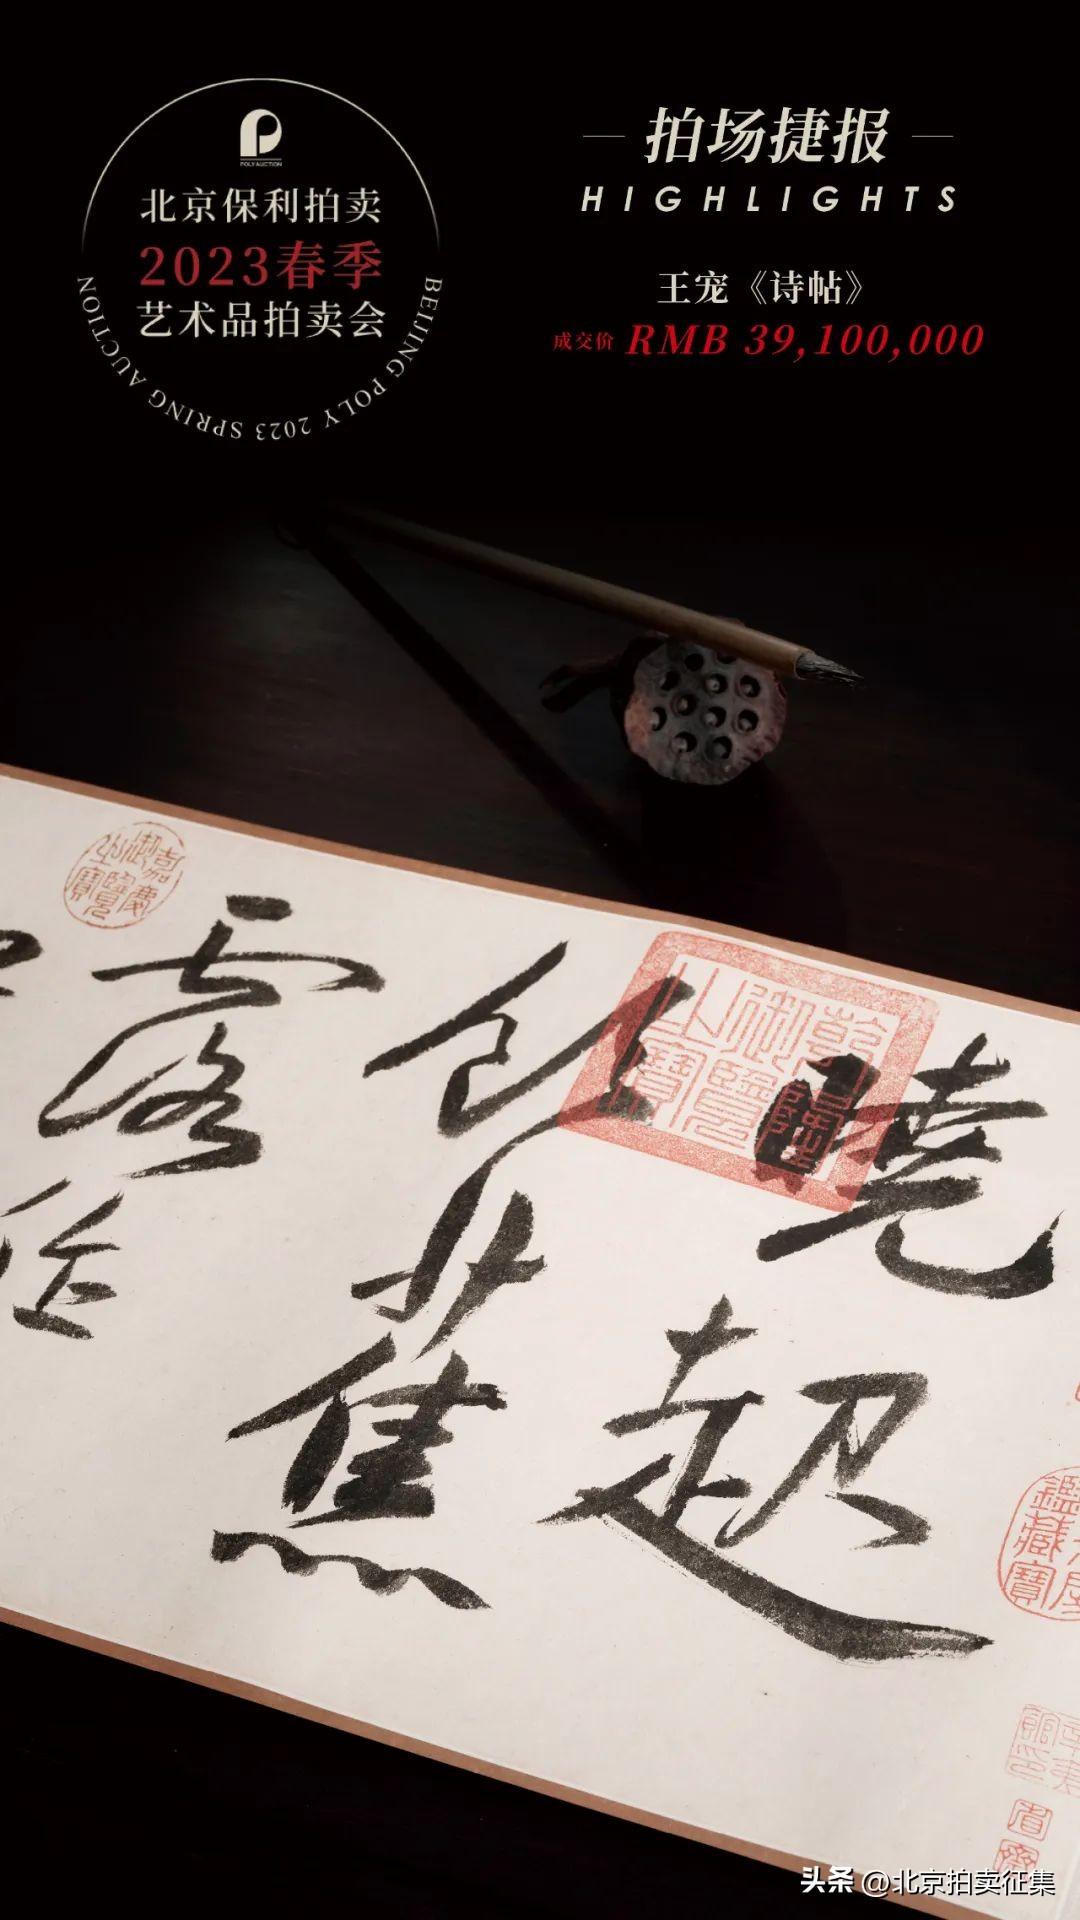 POLY AUCTION
北京保利拍卖
2023春季
艺术品拍卖会
BEIJING POLY 2023 SPRING AUCTION
拍场捷报
HIGHLIGHTS
王宠《诗帖》
成交价 RMB 39,100,000
乾隆御覽之寶
嘉慶御覽之寶
曉起
蕉
露
頭条 @北京拍卖征集